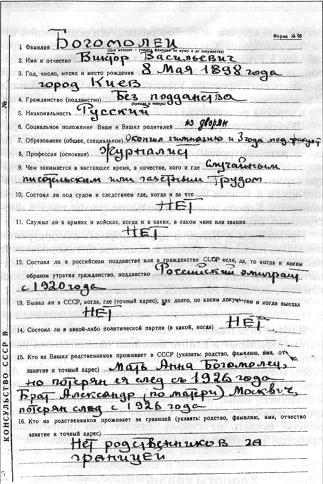 Форма № 96
1 Фамилия БОГОМОЛЕЦ
2. Имя и отчество Виктор Васильевич
3. Год, число, месяц и место рождения 8 Мая 1898 года
город Киев
4. Гражданство (подданство) Без подданства
5. Национальность Русский
6. Социальное положение Ваше и Ваших родителей из дворян
7. Образование (общее, специальное) Окончил гимназию и 3 года мед. факул.
8. Профессия (основная) Журналист
9. Чем занимается в настоящее время, в качестве, кого и где Случайным
писательским или газетным трудом
10. Состоял ли под судом и следствием где, когда и за что
НЕТ
11. Служил ли в армиях и войсках, когда и в каких, в каком чине или звании
НЕТ
12. Состоял ли в российском подданстве или в гражданстве СССР если, да, то когда и каким
образом утратил гражданство, подданство Российский эмигрант
с 1920 года
13. Бывал ли в СССР, когда, где (точный адрес), как долго, по каким документам и когда выехал
НЕТ
14. Состоял ли в какой-либо политической партии (в какой, когда) НЕТ
15. Кто из Ваших родственников проживает в СССР (указать: родство, фамилию, имя, от-
чество занятие и точный адрес) Мать Анна Богомолец,
но потерян ея след съ 1926 года
Брат Александр (по матери) Москвич,
потерян след с 1926 года
16. Кто из родственников проживает за границей (указать: родство, фамилию, имя, отчество
занятие и точный адрес)
Нет родственников за
границей
КОНСУЛЬСТВО СССР В
№